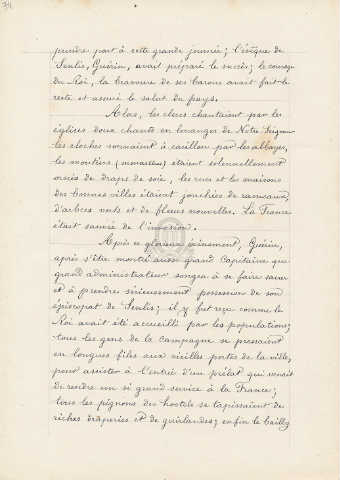 prendre part à cette grande journée; l'évêque de
Senlis, Guérin, avait préparé le succès; le courage
du Roi, la bravoure de ses barons avait fait le
reste et assuré le salut du pays.
Alors, les clercs chantaient par les
églises doux chants en louanges de Notre Seigneur
les cloches sonnaient à carillon par les abbayes,
les moutiers (monastères) étaient solennellement
ornés de draps de soie, les rues et les maisons
des bonnes villes étaient jonchées de rameaux,
d'arbres verts et de fleurs nouvelles. La France
était sauvée de l'invasion.
Après ce glorieux évènement, Guérin,
après s'être montré aussi grand Capitaine que
grand administrateur songea à se faire sacrer
et à prendre sérieusement possession de son
épiscopat de Senlis; il y fut reçu comme le
Roi avait été accueilli par les populations;
tous les gens de la campagne se pressaient
en longues files aux vieilles portes de la ville,
pour assister à l'entrée d'un prélat qui venait
de rendre un si grand service à la France;
tous les pignons des hostels se tapissaient de
riches draperies et de guirlandes; enfin le bailly